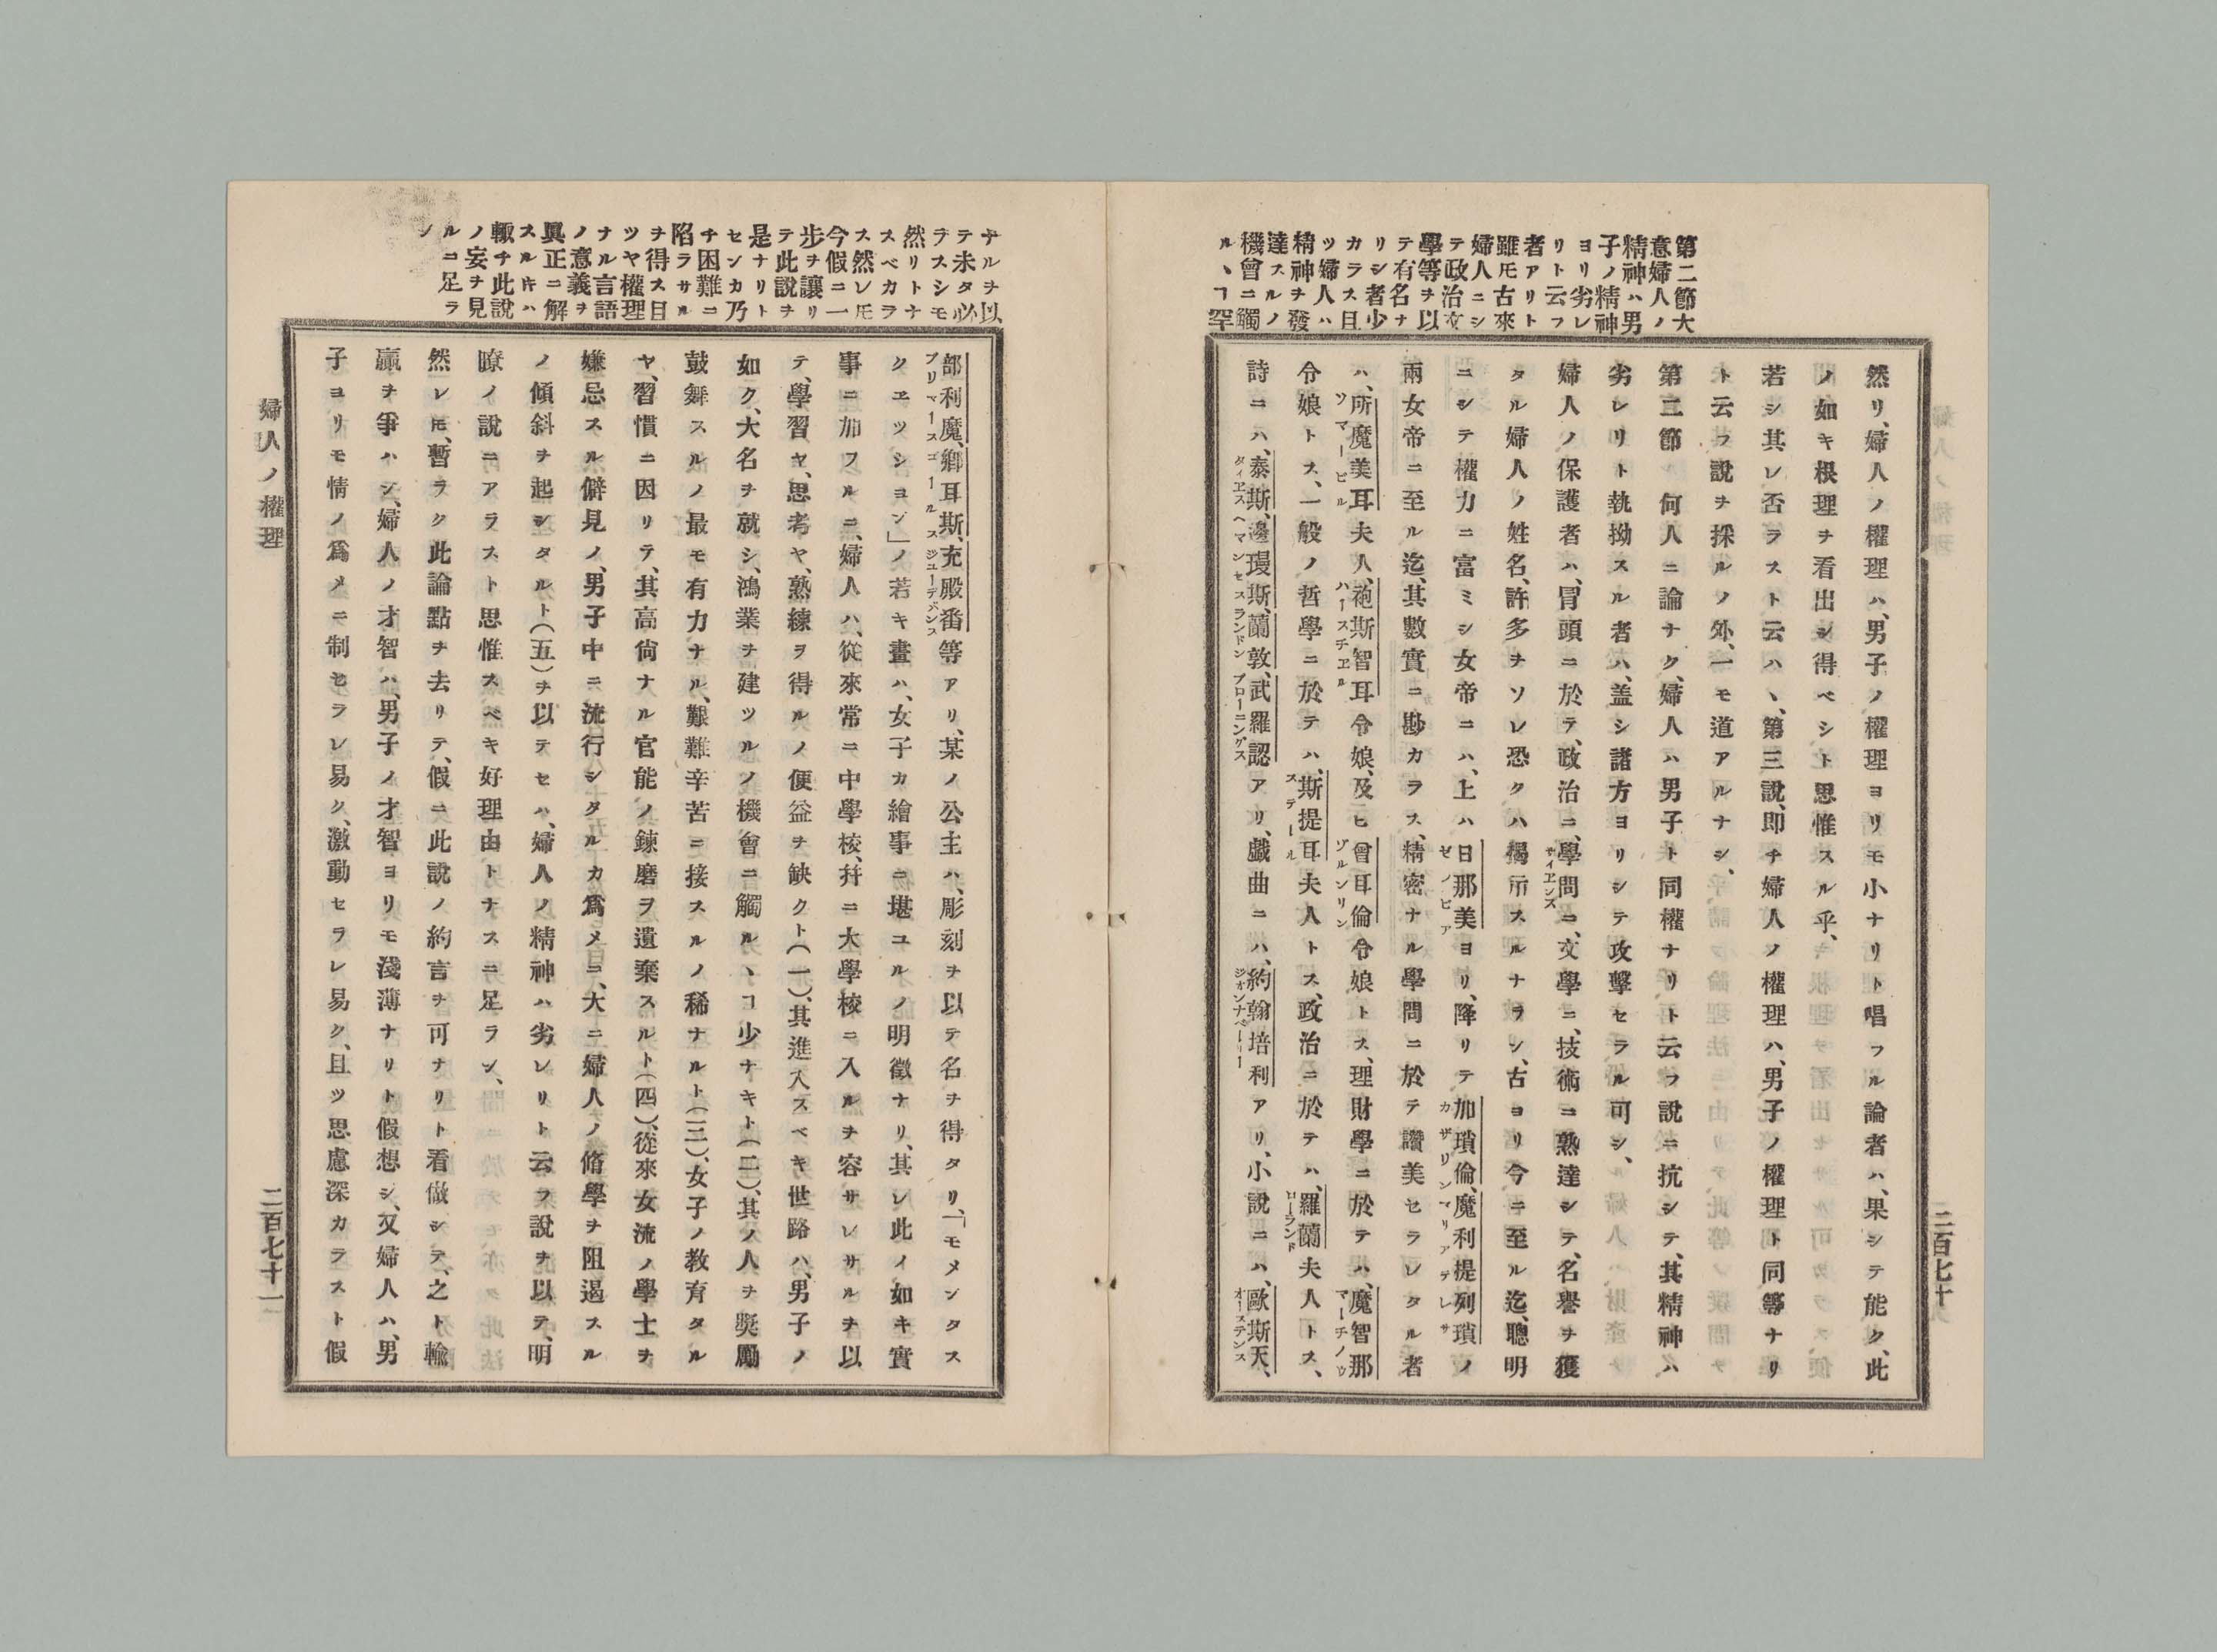 第二節大
意婦人ノ
精神ハ男
子ノ精神
ヨリ劣レ
リト云フ
者アリト
雖𪜈古來
婦人ニシ
テ政治文
學等ヲ以
テ有名ナ
リシ者少
カラス且
ツ婦人ハ
精神ヲ發
達スルノ
機會ニ觸
ルヽヿ罕
然リ、婦人ノ權理ハ、男子ノ權理ヨリモ小ナリト唱フル論者ハ、果シテ能ク、此
ノ如キ根理ヲ看出シ得ベシト思惟スル乎、
若シ其レ否ラスト云ハヽ、第三説、即チ婦人ノ權理ハ、男子ノ權理ト同等ナリ
ト云フ説ヲ採ルノ外、一モ道アルナシ、
第二節　何人ニ論ナク、婦人ハ男子ト同權ナリト云フ説ニ抗シテ、其精神ハ
劣レリト執拗スル者ハ、盖シ諸方ヨリシテ攻擊セラル可シ、
婦人ノ保護者ハ、冒頭ニ於テ、政治ニ、學問ニ、文學ニ、技術ニ熟達シテ、名譽ヲ獲
サイヱンズ
タル婦人ノ姓名、許多ヲソレ恐クハ揭示スルナラン、古ヨリ今ニ至ル迄、聰明
ニシテ權力ニ富ミシ女帝ニハ、上ハ日那美ヨリ、降リテ加瑣倫、魔利提列瑣ノ
ゼノビア
カザリン
マリアテレサ
兩女帝ニ至ル迄、其數實ニ尠カラス、精密ナル學問ニ於テ讚美セラレタル者
ハ、所魔美耳夫人、砲斯智耳令娘、及ヒ曾耳倫令娘トス、理財學ニ於テハ、魔智那
ソマービル
ハースチヱル
ゾルンリン
マーチノウ
令娘トス、一般ノ哲學ニ於テハ、斯提耳夫人トス、政治ニ於テハ、羅蘭夫人トス、
ステール
ローランド
詩ニハ、泰斯、邊璟斯、蘭敦、武羅認アリ、戯曲ニハ、約翰培利アリ、小說ニハ、歐斯天、
タイヱス
ヘマンセス
ランドン
ブローニングス
ジオンナベーリー
オーステンス
二百七十
ナルヲ以
テ未タ必
ラスシモ
然リトナ
スベカラ
ス然レ𪜈
今假ニ一
步ヲ讓リ
テ此說ヲ
是ナリト
センカ乃
チ困難ニ
陷ラサル
ヲ得ス目
ツヤ權理
ナル言語
ノ意義ヲ
眞正ニ解
スルキハ
輙チ此說
ノ妄ヲ見
ルニ足ラ
ン
部利魔、鄕耳斯、充殿番等アリ、某ノ公主ハ、彫刻ヲ以テ名ヲ得タリ、「モメンタス
ブリマース
ゴールス
ジユーデバンス
クヱツシヨン」ノ若キ畫ハ、女子カ繪事ニ堪ユルノ明徵ナリ、其レ此イ如キ實
事ニ加フルニ、婦人ハ、從來常ニ中學校、幷ニ大學校ニ入ルヲ容サレサルヲ以
テ、學習ヤ、思考ヤ、熟練ヲ得ルノ便益ヲ缺クト(一)、其進入スベキ世路ハ、男子ノ
如ク、大名ヲ就シ、鴻業ヲ建ツルノ機會ニ觸ルヽヿ少ナキト(二)、其ノ人ヲ奬勵
鼓舞スルノ最モ有力ナル、艱難辛苦ニ接スルノ稀ナルト(三)、女子ノ教育タル
ヤ、習慣ニ因リテ、其高尙ナル官能ノ鍊磨ヲ遺棄スルト(四)、從來女流ノ學士ヲ
嫌忌スル僻見ノ、男子中ニ流行シタルカ爲メニ、大ニ婦人ノ脩學ヲ阻遏スル
ノ傾斜ヲ起シタルト(五)ヲ以テセハ、婦人ノ精神ハ劣レリト云フ說ヲ以テ、明
瞭ノ說ニアラスト思惟スベキ好理由トナスニ足ラン、
然レ𪜈、暫ラク此論點ヲ去リテ、假ニ此說ノ約言ヲ可ナリト看做シテ、之ト輸
贏ヲ爭ハン、婦人ノ才智ハ、男子ノ才智ヨリモ淺薄ナリト假想シ、又婦人ハ、男
子ヨリモ情ノ爲メニ制セラレ易ク、激動セラレ易ク、且ツ思慮深カラスト假
婦人ノ權理
二百七十一